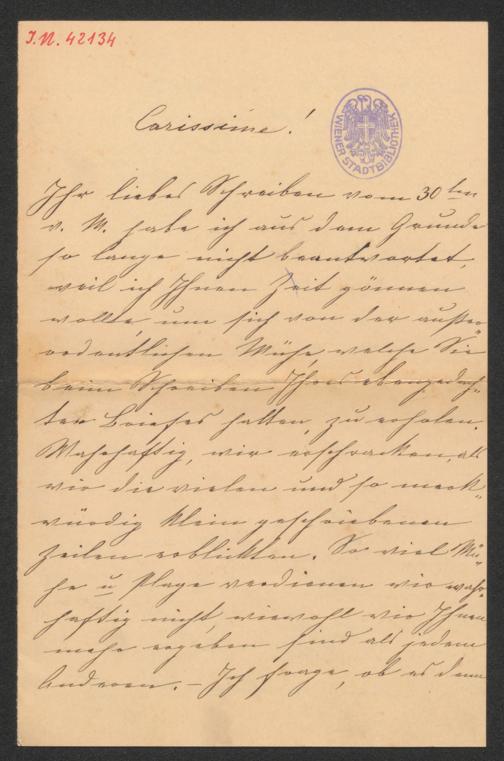 I.N. 42134
Carissime!
WIENER STADTBIBLIOTHEK
Ihr liebes Schreiben vom 30ten
v. M. habe ich aus dem Grunde
so lange nicht beantwortet,
weil ich Ihnen Zeit gönnen
wollte, um sich von der außer-
ordentlichen Mühe welche Sie
beim Schreiben Ihres ebengedach-
ten Briefes hatten, zu erholen.
Wahrhaftig, wir erschracken, als
wir die vielen und so merk-
würdig klein geschriebenen
Zeilen erblickten. So viel Mü-
he u Plage verdienen wir wahr-
haftig nicht, wiewohl wir Ihnen
mehr ergeben sind als jedem
Anderen. – Ich frage, ob es denn